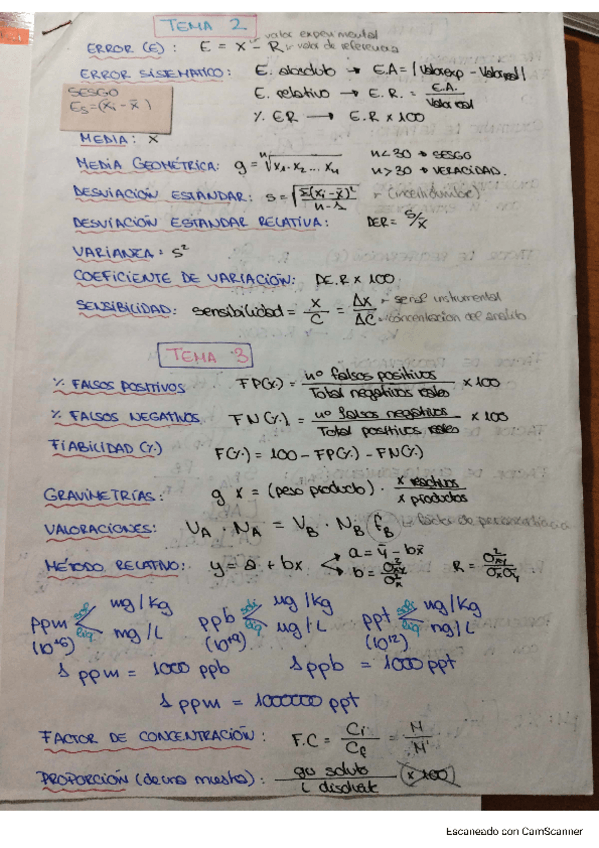 TEMA 2
ERROR (E): E = X - R
valor experimental
valor de referencia
ERROR SISTEMATICO: E. absoluto → E.A = | Valor exp - Valor real |
SESGO
Es = (x̄i - x̄)
E. relativo → E.R. = E.A. / Valor real
% ER → E.R x 100
MEDIA: x̄
MEDIA GEOMÉTRICA: g = ⁿ√x₁ · x₂ ... xₙ
n < 30 → SESGO
n > 30 → VERACIDAD.
DESVIACIÓN ESTANDAR: s = √Σ(xi - x̄)² / n - 1 → (incertidumbre)
DESVIACIÓN ESTANDAR RELATIVA: DER = s/x̄
VARIANZA: s²
COEFICIENTE DE VARIACIÓN: DE.R x 100
SENSIBILIDAD: sensibilidad = X / C = ΔX / ΔC
señal instrumental
concentración del analito
TEMA 3
% FALSOS POSITIVOS FP(%) = nº falsos positivos / Total negativos reales x 100
% FALSOS NEGATIVOS FN(%) = nº falsos negativos / Total positivos reales x 100
FIABILIDAD (%) F(%) = 100 - FP(%) - FN(%)
GRAVIMETRÍAS: g x = (peso producto) · x reactivos / x productos
VALORACIONES: VA · NA = VB · NB (fB)
MÉTODO RELATIVO: y = a + bx
a = ȳ - bx̄
b = σ²xy / σ²x
R = σ²xy / σxσy
ppm sol µg/kg liq mg/L
ppb sol µg/kg liq µg/L
ppt sol ng/kg liq ng/L
(10^6) (10^9) (10^12)
1 ppm = 1000 ppb 1 ppb = 1000 ppt
1 ppm = 1000000 ppt
FACTOR DE CONCENTRACIÓN: F.C = Ci / Cf = M / M'
PROPORCIÓN (de una muestra): gr soluto / L disolvte (x 100)
Escaneado con CamScanner